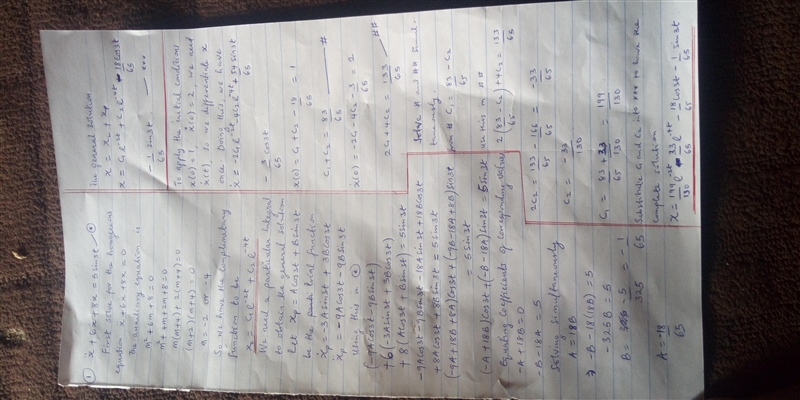 ① ẍ + 6ẋ + 8x = 5 sin3t —— *
First solve for the homogeneous
equation ẍ + 6ẋ + 8x = 0
The auxiliary equation is
m² + 6m + 8 = 0
m² + 4m + 2m + 8 = 0
m(m+4) + 2(m+4) = 0
(m+2)(m+4) = 0
m = -2 or -4
So we have the complementary
function to be
x = C₁e^-2t + C₂e^-4t
We need a particular integral
to obtain the general solution
Let xp = Acos3t + Bsin3t
be the function
ẋp = -3Asin3t + 3Bcos3t
ẍp = -9Acos3t - 9Bsin3t
Using this in *
(-9Acos3t - 9Bsin3t)
+ 6(-3Asin3t + 3Bcos3t)
+ 8(Acos3t + Bsin3t) = 5sin3t
-9Acos3t - 9Bsin3t - 18Asin3t + 18Bcos3t
+ 8Acos3t + 8Bsin3t = 5sin3t
(-9A + 18B + 8A)cos3t + (-9B - 18A + 8B)sin3t
= 5sin3t
(-A + 18B)cos3t + (-B - 18A)sin3t = 5sin3t
Equating coefficients of corresponding values
-A + 18B = 0
-B - 18A = 5
Solving simultaneously
A = 18B
⇒ -B - 18(18B) = 5
-325B = 5
B = -5/325 = -1/65
A = -18/65
The general solution
x = xc + xp
x = C₁e^-2t + C₂e^-4t - 18/65 cos3t
- 1/65 sin3t —— ***
To apply the initial conditions
x(0) = 1 ẋ(0) = 2 we need
ẋ(t), so we differentiate x
once. Doing that, we have
ẋ = -2C₁e^-2t - 4C₂e^-4t + 54/65 sin3t
- 3/65 cos3t
x(0) = C₁ + C₂ - 18/65 = 1
C₁ + C₂ = 83/65 —— #
ẋ(0) = -2C₁ - 4C₂ - 3/65 = 2
2C₁ + 4C₂ = 133/65 ##
Solve # and ## simul-
taneously.
from # C₁ = 83/65 - C₂
use this in ##
2(83/65 - C₂) + 4C₂ = 133/65
2C₂ = 133/65 - 166/65 = -33/65
C₂ = -33/130
C₁ = 83/65 + 33/130 = 199/130
Substitute C₁ and C₂ into *** to have the
complete solution
x = 199/130 e^-2t - 33/130 e^-4t - 18/65 cos3t - 1/65 sin3t